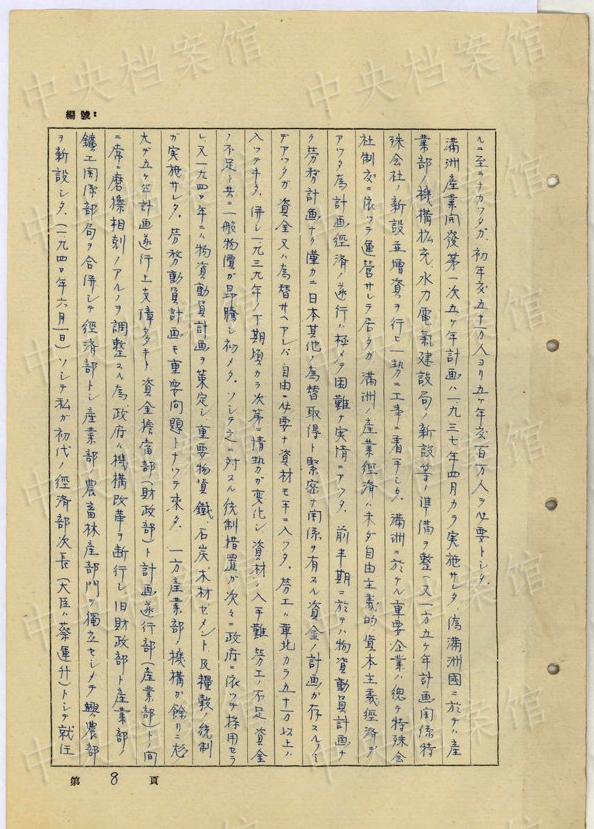 編號:
ルニ至ラナカツタガ、初年度五十万人ヨリ五ヶ年度百万人ヲ必要トシタ、
滿洲産業開發第一次五ヶ年計画ハ一九三七年四月カラ実施サレタ 偽滿洲國ニ於テハ産
業部ノ機構拡充水力電氣建設局ノ新設等準備ヲ整ヘ又一方五ヶ年計画関係特
殊会社ノ新設並増資ヲ行ヒ一勢ニ工事ニ着手シタ、滿洲ニ於ケル重要企業ハ總テ特殊会
社制度ニ依ツテ運營サレテ居タガ 滿洲ノ産業經済ハ未ダ自由主義的資本主義經済デ
アツタ為計画經済ノ遂行ハ極メテ困難ナ実情ニアツタ、前半期ニ於テハ物資動員計画ナ
ク労務計画ナク僅カニ日本其他ノ為替取得ト緊密ナ関係ヲ有スル資金ノ計画ガ存スルノミ
デアツタガ資金又ハ為替サヘアレバ自由ニ必要ナ資材モ手ニ入ツタ、労工ハ華北カラ五十万以上ハ
入ツテキタ、併シ一九三九年ノ下期頃カラ次第ニ情勢ガ変化シ資材ノ入手難 労工ノ不足 資金
ノ不足ト共ニ一般物價ガ昂騰シ初メタ、ソシテ之ニ対スル統制措置ガ次々ニ政府ニ依ツテ採用セラ
レ又一九四〇年ニハ物資動員計画ヲ策定シ重要物資鐵、石炭、木材セメント及糧穀ノ統制
ガ実施サレタ、労務動員計画モ重要問題トナツテ來タ、一方産業部ノ機構ガ餘リニ厖
大デ五ヶ年計画遂行上支障多ク 資金擔當部(財政部)ト計画遂行部(産業部)トノ間
ニ常ニ磨擦相剋ノアルノヲ調整スル為、政府ハ機構改革ヲ断行シ旧財政部ト産業部ノ
鑛工関係部局ヲ合併シテ經済部トシ産業部ノ農畜林産部門ヲ獨立セシメテ興農部
ヲ新設シタ、(一九四〇年六月一日) ソシテ私ガ初代ノ經済部次長(大臣ハ蔡運升)トシテ就任
第 8 頁
中央档案馆